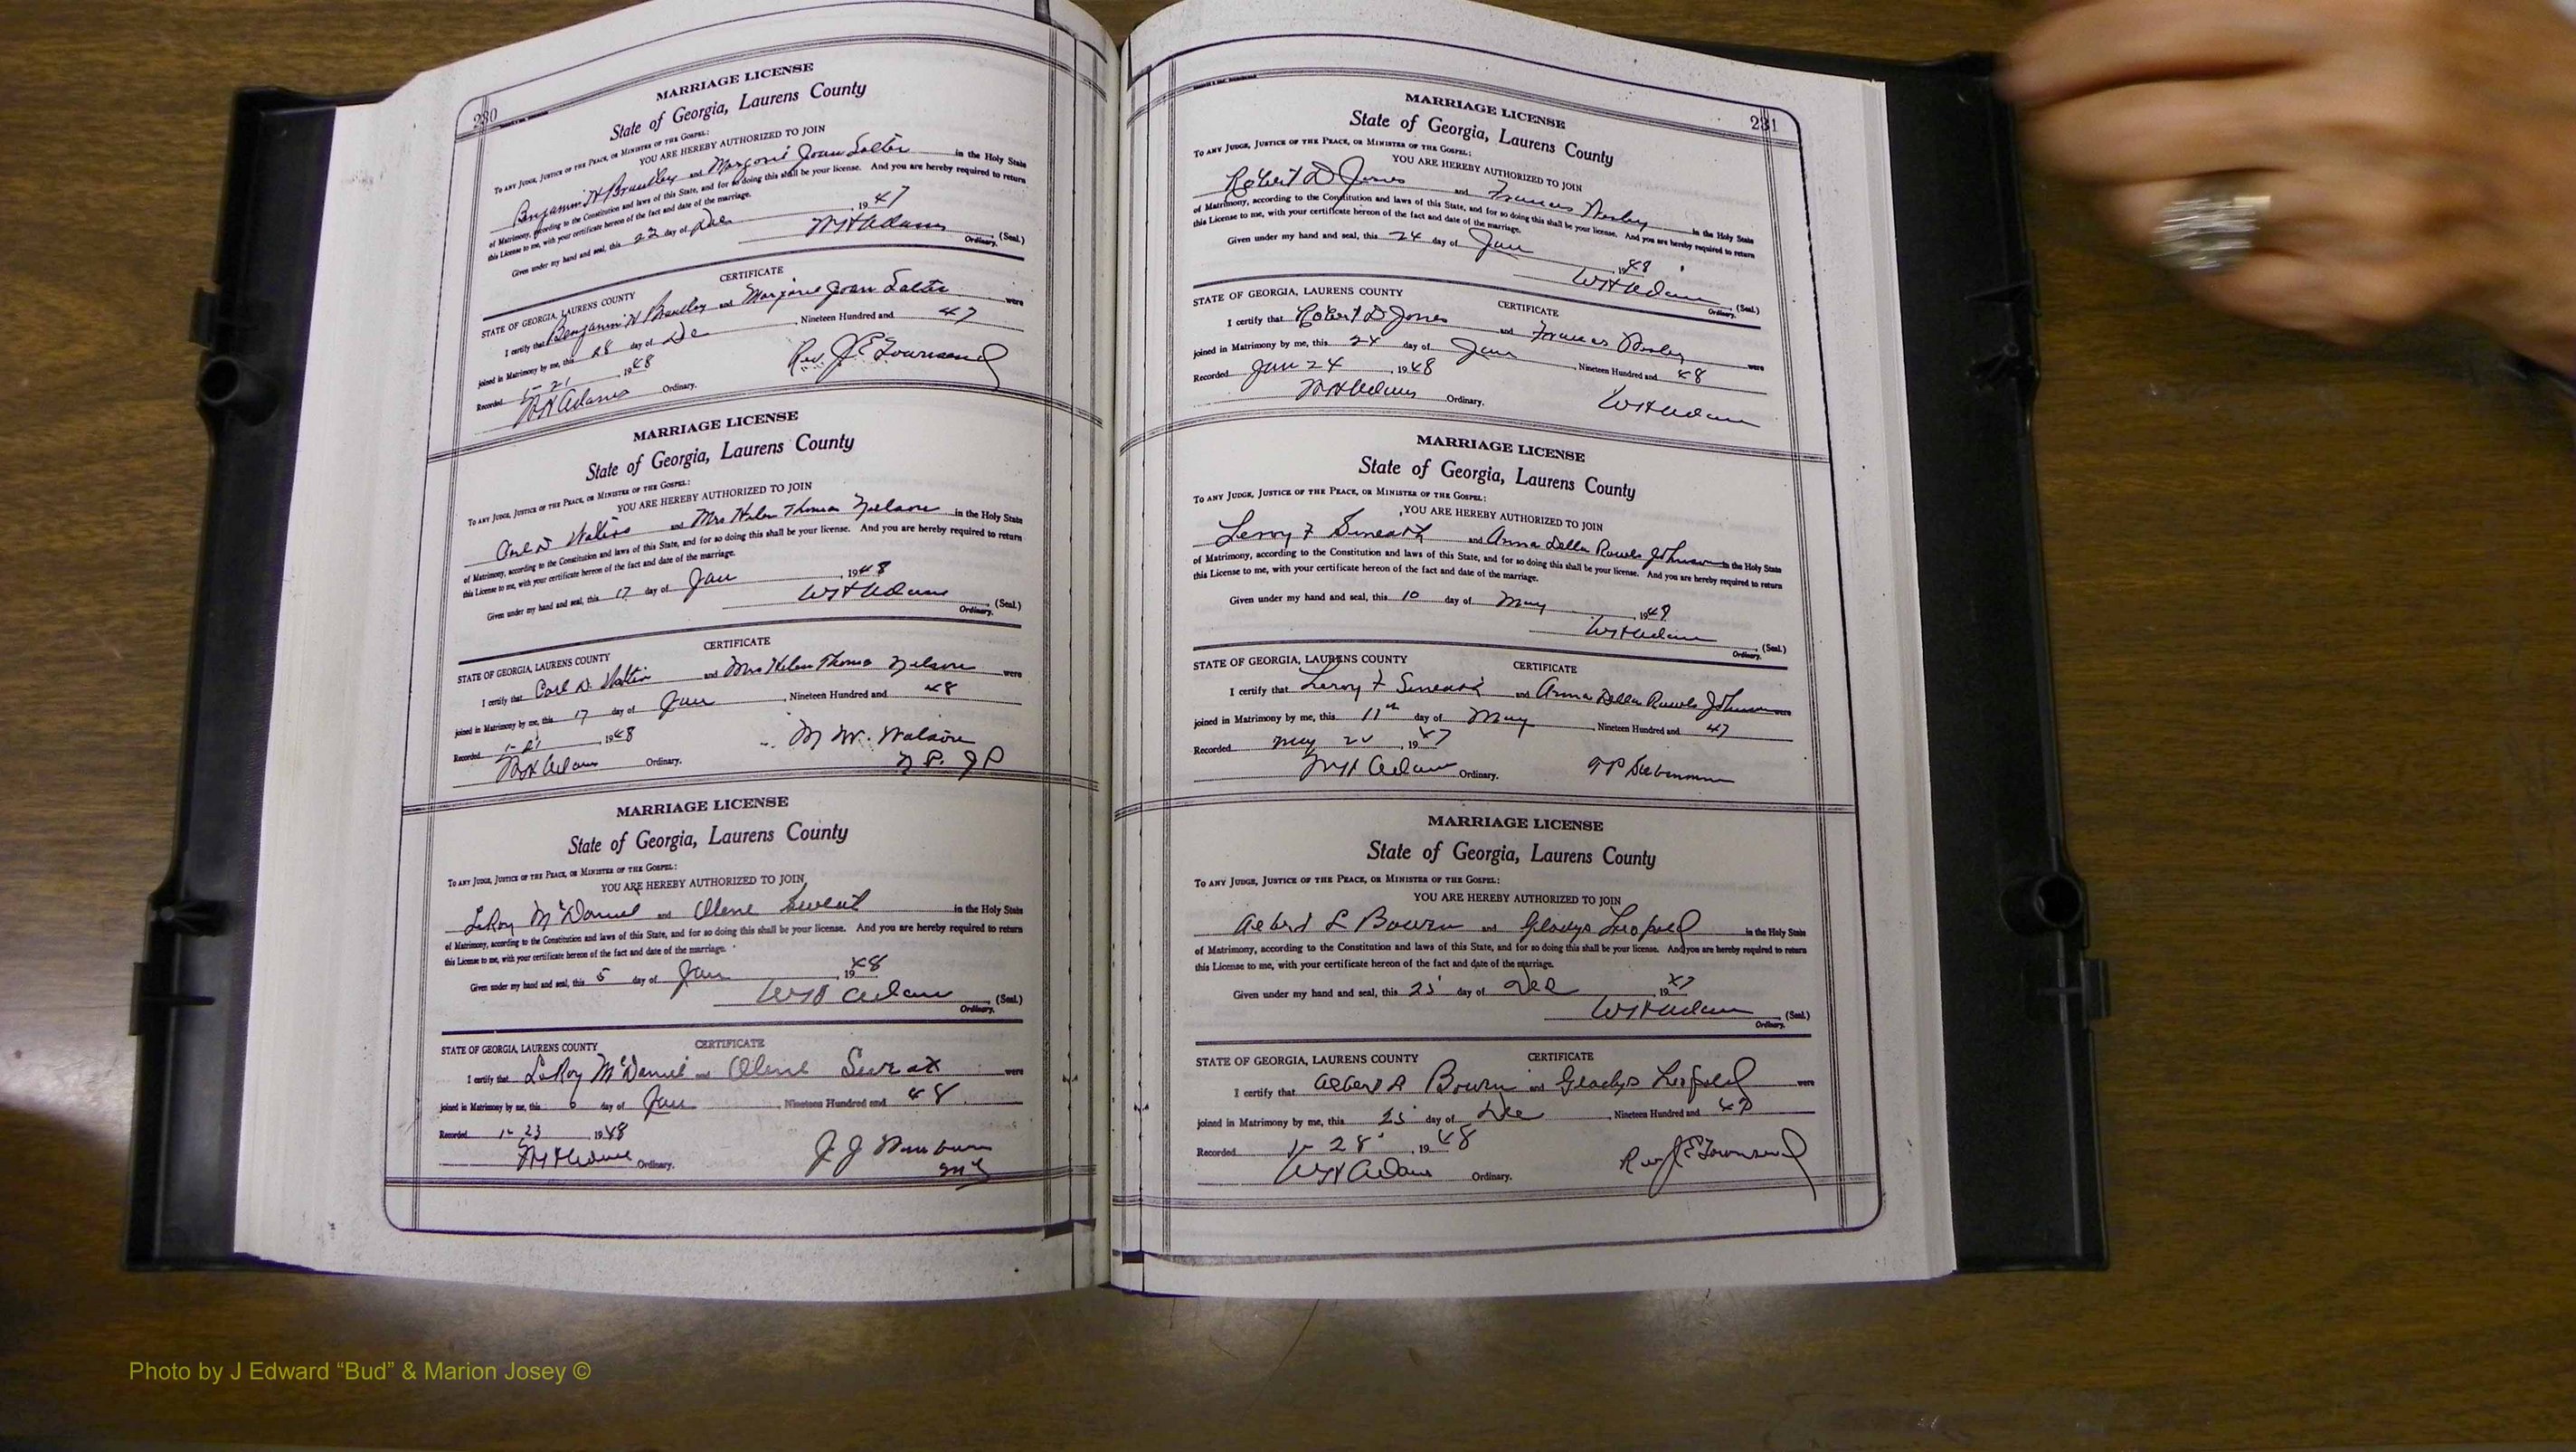 230
MARRIAGE LICENSE
State of Georgia, Laurens County
To any Judge, Justice of the Peace, or Minister of the Gospel:
YOU ARE HEREBY AUTHORIZED TO JOIN
Benjamin H Brantley and Marjorie Joan Salter in the Holy State
of Matrimony, according to the Constitution and laws of this State, and for so doing this shall be your license. And you are hereby required to return
this License to me, with your certificate hereon of the fact and date of the marriage.
Given under my hand and seal, this 22 day of Dec 1947
WH Adams (Seal.)
Ordinary.
CERTIFICATE
STATE OF GEORGIA, LAURENS COUNTY
I certify that Benjamin H Brantley and Marjorie Joan Salter were
joined in Matrimony by me, this 28 day of De , Nineteen Hundred and 47
Recorded 1-21, 1948
WH Adams Ordinary. Rev. J E Townsend
MARRIAGE LICENSE
State of Georgia, Laurens County
To any Judge, Justice of the Peace, or Minister of the Gospel:
YOU ARE HEREBY AUTHORIZED TO JOIN
Carl D and Mrs Helen Thomas Nelson in the Holy State
of Matrimony, according to the Constitution and laws of this State, and for so doing this shall be your license. And you are hereby required to return
this License to me, with your certificate hereon of the fact and date of the marriage.
Given under my hand and seal, this 17 day of Jan , 1948
WH Adams (Seal.)
Ordinary.
CERTIFICATE
STATE OF GEORGIA, LAURENS COUNTY
I certify that Carl D. and Mrs Helen Thomas Nelson were
joined in Matrimony by me, this 17 day of Jan , Nineteen Hundred and 48
Recorded 1-21, 1948
WH Adams Ordinary. M W. Watson
N P. J P
MARRIAGE LICENSE
State of Georgia, Laurens County
To any Judge, Justice of the Peace, or Minister of the Gospel:
YOU ARE HEREBY AUTHORIZED TO JOIN
LeRoy McDaniel and Olene Sweat in the Holy State
of Matrimony, according to the Constitution and laws of this State, and for so doing this shall be your license. And you are hereby required to return
this License to me, with your certificate hereon of the fact and date of the marriage.
Given under my hand and seal, this 5 day of Jan , 1948
WH Adams (Seal.)
Ordinary.
CERTIFICATE
STATE OF GEORGIA, LAURENS COUNTY
I certify that LeRoy McDaniel and Olene Sweat were
joined in Matrimony by me, this 6 day of Jan , Nineteen Hundred and 48.
Recorded 1-23, 1948
WH Adams Ordinary. J J
231
MARRIAGE LICENSE
State of Georgia, Laurens County
To any Judge, Justice of the Peace, or Minister of the Gospel:
YOU ARE HEREBY AUTHORIZED TO JOIN
Robert D Jones and Frances in the Holy State
of Matrimony, according to the Constitution and laws of this State, and for so doing this shall be your license. And you are hereby required to return
this License to me, with your certificate hereon of the fact and date of the marriage.
Given under my hand and seal, this 24 day of Jan , 1948
WH Adams (Seal.)
Ordinary.
CERTIFICATE
STATE OF GEORGIA, LAURENS COUNTY
I certify that Robert D Jones and Frances were
joined in Matrimony by me, this 24 day of Jan , Nineteen Hundred and 48
Recorded Jan 24, 1948
WH Adams Ordinary. WH Adams
MARRIAGE LICENSE
State of Georgia, Laurens County
To any Judge, Justice of the Peace, or Minister of the Gospel:
YOU ARE HEREBY AUTHORIZED TO JOIN
Leroy F Sineath and Anna Della Rawls Johnson in the Holy State
of Matrimony, according to the Constitution and laws of this State, and for so doing this shall be your license. And you are hereby required to return
this License to me, with your certificate hereon of the fact and date of the marriage.
Given under my hand and seal, this 10 day of May
WH Adams (Seal.)
Ordinary.
CERTIFICATE
STATE OF GEORGIA, LAURENS COUNTY
I certify that Leroy F Sineath and Anna Della Rawls Johnson were
joined in Matrimony by me, this 11th day of May , Nineteen Hundred and 47
Recorded May , 1947
WH Adams Ordinary. T P
MARRIAGE LICENSE
State of Georgia, Laurens County
To any Judge, Justice of the Peace, or Minister of the Gospel:
YOU ARE HEREBY AUTHORIZED TO JOIN
Albert L Bourn and Gladys Leopold in the Holy State
of Matrimony, according to the Constitution and laws of this State, and for so doing this shall be your license. And you are hereby required to return
this License to me, with your certificate hereon of the fact and date of the marriage.
Given under my hand and seal, this 25 day of Dec , 1947
WH Adams (Seal.)
Ordinary.
CERTIFICATE
STATE OF GEORGIA, LAURENS COUNTY
I certify that Albert L Bourn and Gladys Leopold were
joined in Matrimony by me, this 25 day of Dec , Nineteen Hundred and 47
Recorded 1-28, 1948
WH Adams Ordinary. Rev J E Townsend
Photo by J Edward “Bud” & Marion Josey ©